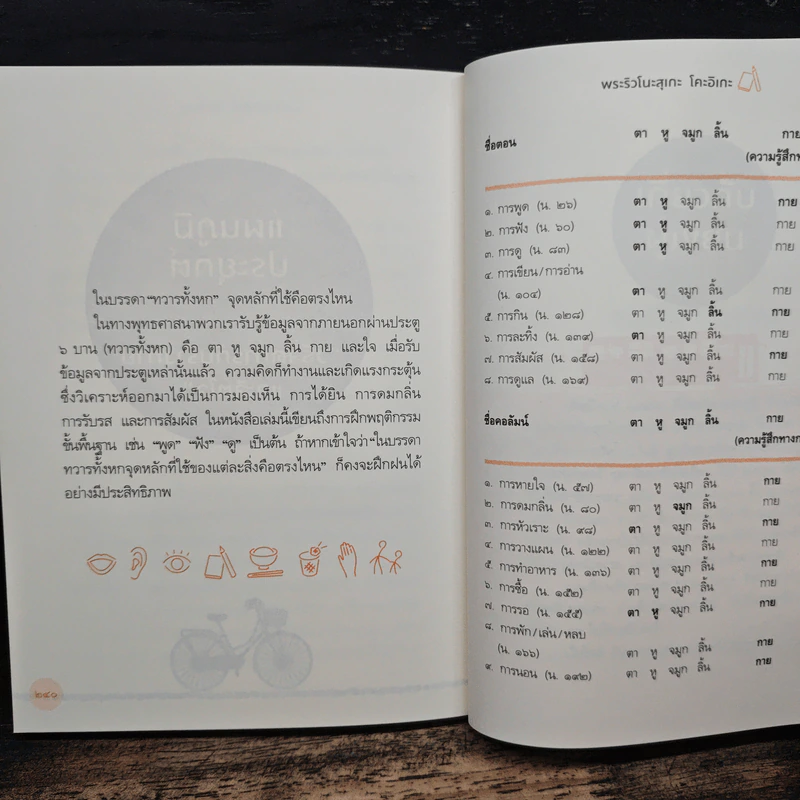 ในบรรดา "ทวารทั้งหก" จุดหลักที่ใช้คือตรงไหน
ในทางพุทธศาสนาพวกเรารับรู้ข้อมูลจากภายนอกผ่านประตู
๖ บาน (ทวารทั้งหก) คือ ตา หู จมูก ลิ้น กาย และใจ เมื่อรับ
ข้อมูลจากประตูเหล่านั้นแล้ว ความคิดก็ทำงานและเกิดแรงกระตุ้น
ซึ่งวิเคราะห์ออกมาได้เป็นการมองเห็น การได้ยิน การดมกลิ่น
การรับรส และการสัมผัส ในหนังสือเล่มนี้เขียนถึงการฝึกพฤติกรรม
ขั้นพื้นฐาน เช่น "พูด" "ฟัง" "ดู" เป็นต้น ถ้าหากเข้าใจว่า "ในบรรดา
ทวารทั้งหกจุดหลักที่ใช้ของแต่ละสิ่งคือตรงไหน" ก็คงจะฝึกฝนได้
อย่างมีประสิทธิภาพ
๒๔๐
พระริวโนะสุเกะ โคะอิเกะ
ชื่อตอน ตา หู จมูก ลิ้น กาย
(ความรู้สึกท
๑. การพูด (น. ๒๖) ตา หู จมูก ลิ้น กาย
๒. การฟัง (น. ๖๐) ตา หู จมูก ลิ้น กาย
๓. การดู (น. ๘๓) ตา หู จมูก ลิ้น กาย
๔. การเขียน/การอ่าน
(น. ๑๐๔) ตา หู จมูก ลิ้น กาย
๕. การกิน (น. ๑๒๘) ตา หู จมูก ลิ้น กาย
๖. การละทิ้ง (น. ๑๓๙) ตา หู จมูก ลิ้น กาย
๗. การสัมผัส (น. ๑๕๘) ตา หู จมูก ลิ้น กาย
๘. การดูแล (น. ๑๖๙) ตา หู จมูก ลิ้น กาย
ชื่อคอลัมน์ ตา หู จมูก ลิ้น กาย
(ความรู้สึกทางก
๑. การหายใจ (น. ๕๗) ตา หู จมูก ลิ้น กาย
๒. การดมกลิ่น (น. ๘๐) ตา หู จมูก ลิ้น กาย
๓. การหัวเราะ (น. ๙๘) ตา หู จมูก ลิ้น กาย
๔. การวางแผน (น. ๑๒๒) ตา หู จมูก ลิ้น กาย
๕. การทำอาหาร (น. ๑๓๖) ตา หู จมูก ลิ้น กาย
๖. การซื้อ (น. ๑๕๒) ตา หู จมูก ลิ้น กาย
๗. การรอ (น. ๑๕๕) ตา หู จมูก ลิ้น กาย
๘. การพัก/เล่น/หลบ
(น. ๑๖๖) ตา หู จมูก ลิ้น กาย
๙. การนอน (น. ๑๙๒) ตา หู จมูก ลิ้น กาย